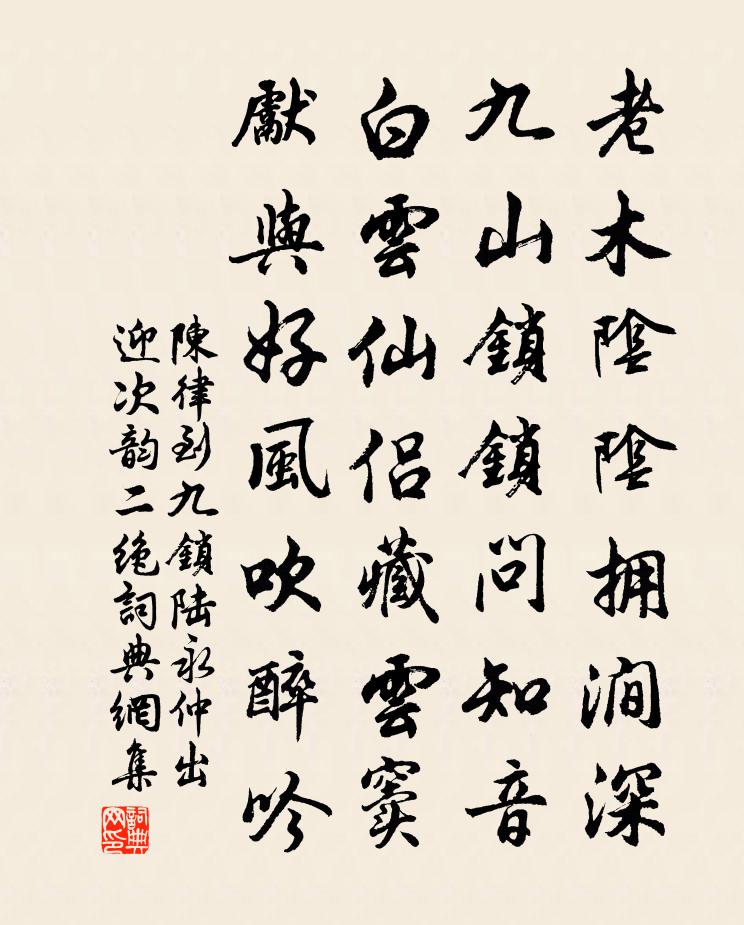 老木陰陰拥澗深
九山鎖鎖問知音
白雲仙侣藏雲窦
獻與好風吹醉吟
陳律到九鎖陆永仲出
迎次韵二绝詞典網集
詞典